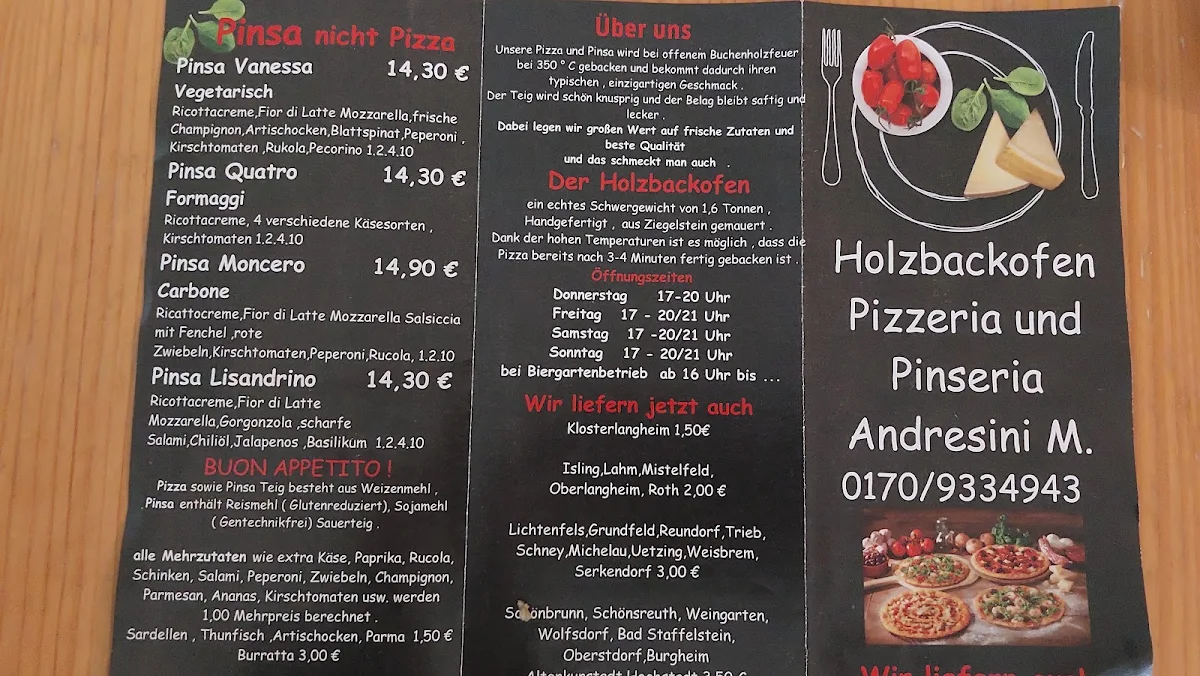 Pinsa nicht Pizza
Pinsa Vanessa 14,30 €
Vegetarisch
Ricottacreme,Fior di Latte Mozzarella,frische
Champignon,Artischocken,Blattspinat,Peperoni ,
Kirschtomaten ,Rukola,Pecorino 1.2.4.10
Pinsa Quatro 14,30 €
Formaggi
Ricottacreme, 4 verschiedene Käsesorten ,
Kirschtomaten 1.2.4.10
Pinsa Moncero 14,90 €
Carbone
Ricattocreme,Fior di Latte Mozzarella Salsiccia
mit Fenchel ,rote
Zwiebeln,Kirschtomaten,Peperoni,Rucola, 1.2.10
Pinsa Lisandrino 14,30 €
Ricottacreme,Fior di Latte
Mozzarella,Gorgonzola ,scharfe
Salami,Chiliöl,Jalapenos ,Basilikum 1.2.4.10
BUON APPETITO !
Pizza sowie Pinsa Teig besteht aus Weizenmehl ,
.Pinsa enthält Reismehl ( Glutenreduziert), Sojamehl
( Gentechnikfrei) Sauerteig .
alle Mehrzutaten wie extra Käse, Paprika, Rucola,
Schinken, Salami, Peperoni, Zwiebeln, Champignon,
Parmesan, Ananas, Kirschtomaten usw. werden
1,00 Mehrpreis berechnet .
Sardellen , Thunfisch ,Artischocken, Parma 1,50 €
Burratta 3,00 €
Über uns
Unsere Pizza und Pinsa wird bei offenem Buchenholzfeuer
bei 350 ° C gebacken und bekommt dadurch ihren
typischen , einzigartigen Geschmack .
Der Teig wird schön knusprig und der Belag bleibt saftig und
lecker .
Dabei legen wir großen Wert auf frische Zutaten und
beste Qualität
und das schmeckt man auch .
Der Holzbackofen
ein echtes Schwergewicht von 1,6 Tonnen ,
Handgefertigt , aus Ziegelstein gemauert .
Dank der hohen Temperaturen ist es möglich , dass die
Pizza bereits nach 3-4 Minuten fertig gebacken ist .
Öffnungszeiten
Donnerstag 17-20 Uhr
Freitag 17 - 20/21 Uhr
Samstag 17 -20/21 Uhr
Sonntag 17 - 20/21 Uhr
bei Biergartenbetrieb ab 16 Uhr bis ...
Wir liefern jetzt auch
Klosterlangheim 1,50€
Isling,Lahm,Mistelfeld,
Oberlangheim, Roth 2,00 €
Lichtenfels,Grundfeld,Reundorf,Trieb,
Schney,Michelau,Uetzing,Weisbrem,
Serkendorf 3,00 €
Schönbrunn, Schönsreuth, Weingarten,
Wolfsdorf, Bad Staffelstein,
Oberstdorf,Burgheim
Altenkunstadt,Hochstadt 3,50 €
Holzbackofen
Pizzeria und
Pinseria
Andresini M.
0170/9334943
Wir liefern aus!